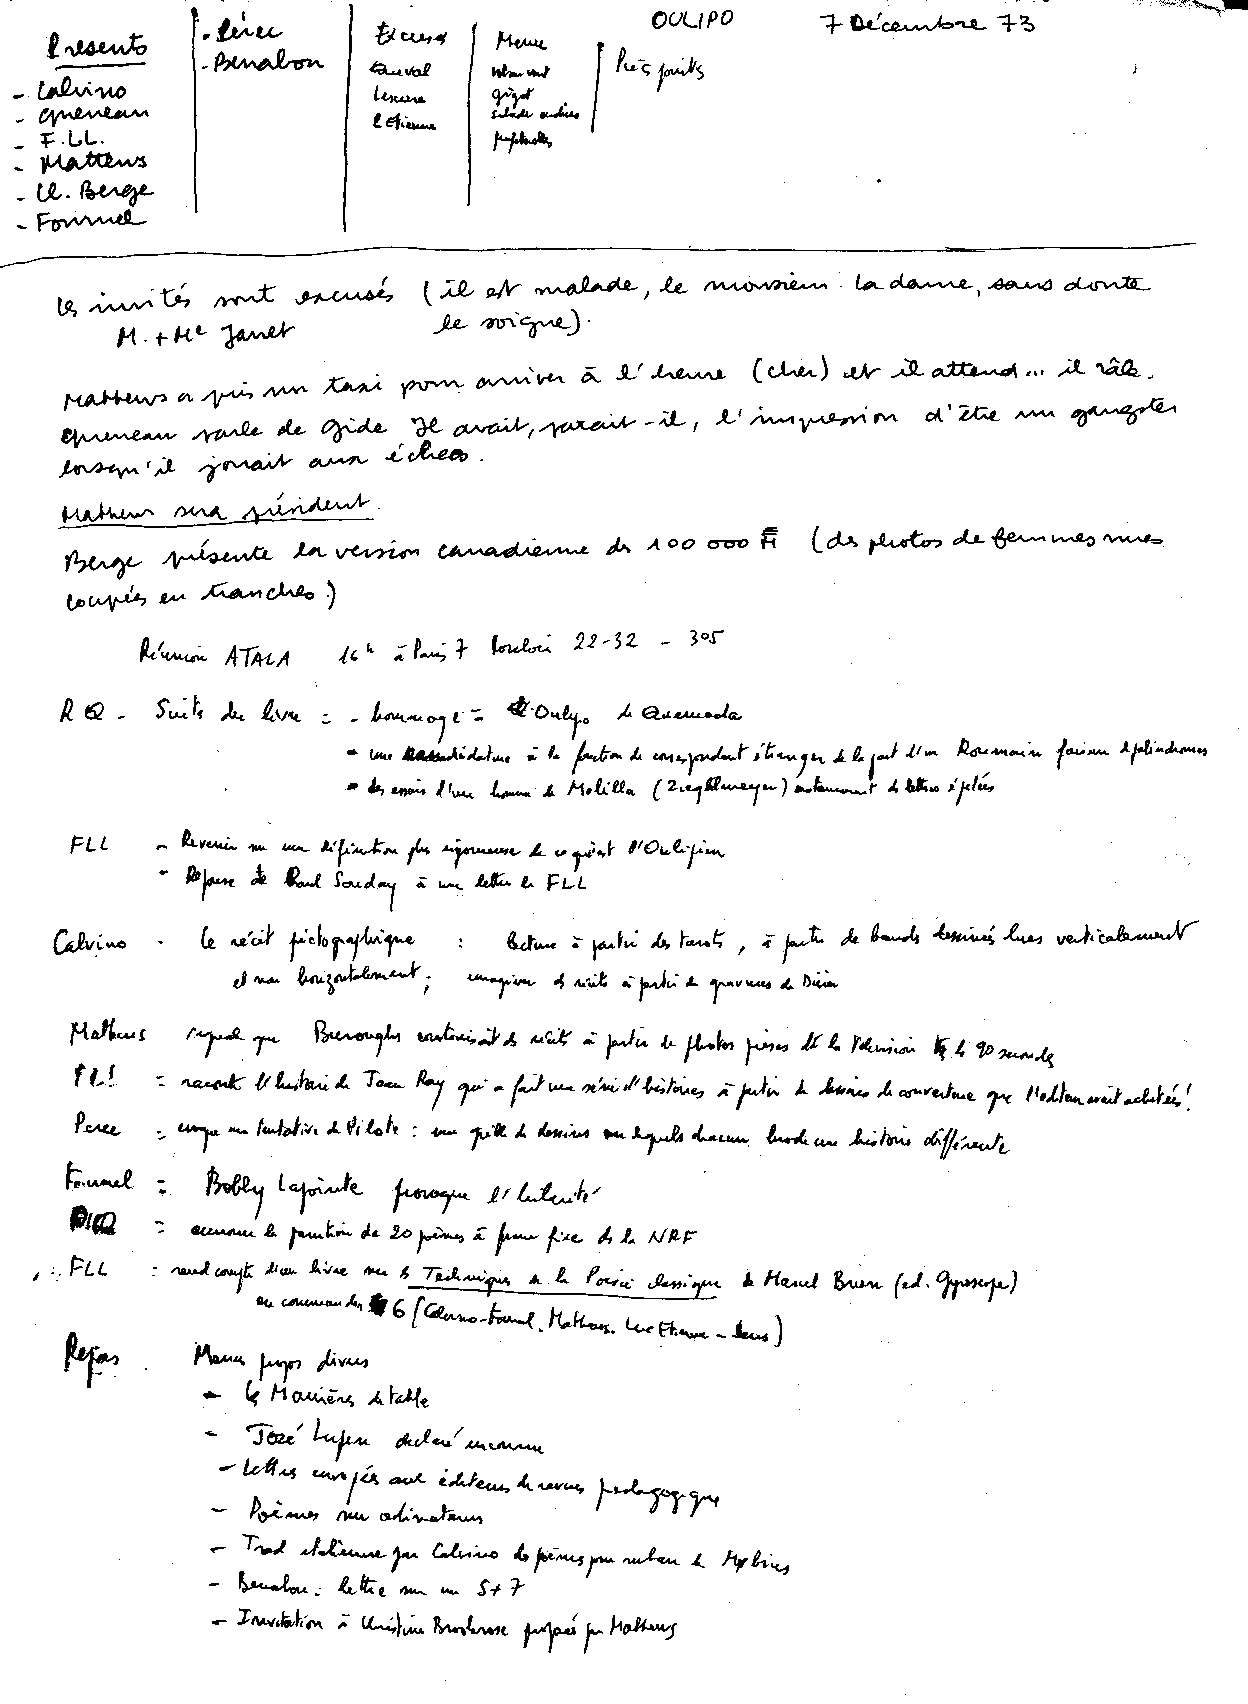 OULIPO 7 Décembre 73
Présents
- Calvino
- Queneau
- F.L.L.
- Mathews
- Cl. Berge
- Fournel
- Pérec
- Benabou
Excusés
Queval
Lescure
L Etienne
Menu
gigot
salade endives
profiterolles
les invités sont excusés (il est malade, le monsieur. la dame, sans doute
M. + Me Janet le soigne).
Mathews a pris un taxi pour arriver à l'heure (cher) et il attend... il râle.
Queneau parle de Gide Il avait, parait-il, l'impression d'être un gangster
lorsqu'il jouait aux échecs.
Mathews sera président.
Berge présente la version canadienne des 100 000 M (des photos de femmes nues
coupées en tranches)
Réunion ATALA 16h à Paris 7 Couloir 22-32 - 305
R Q - Suites du livre = - hommage = Oulipo de Quemada
- une candidature à la fonction de correspondant étranger de la part d'un Roumain faiseur de palindromes
- des essais d'un homme de Melilla ( ) notamment de lettres épelées
FLL - Revenir sur une définition plus rigoureuse de ce qu'est l'Oulipien
- Réponse de Paul Souday à une lettre de FLL
Calvino - Le récit pictographique : lecture à partir des tarots, à partir de bandes dessinées lues verticalement
et non horizontalement ; imaginer des récits à partir de gravures de Dürer
Mathews signale que Burroughs construisait des récits à partir de photos prises de la télévision ttes les 90 secondes
FLL = raconte l'histoire de Jean Ray qui a fait une série d'histoires à partir de dessins de couverture que l'éditeur avait achetés !
Perec = évoque une tentative de Pilote : une grille de dessins sur lesquels chacun brode une histoire différente
Fournel = Bobby Lapointe provoque l'hilarité
RQ = annonce la parution de 20 poèmes à forme fixe ds la NRF
FLL = rend compte d'un livre sur les Techniques de la Poésie classique de Marcel Brion (ed. Gyroscope)
en commander 6 (Calvino - Fournel, Mathews, Luc Etienne - )
Repas. Menus propos divers
- Les Manières de table
- José Lupin déclaré inconnu
- Lettres envoyées aux éditeurs de revues pédagogiques
- Poèmes sur ordinateurs
- Trad italienne par Calvino des poèmes pour ruban de Moebius
- Benabou : lettre sur un S+7
- Invitation à Christine Brookrose proposée par Mathews